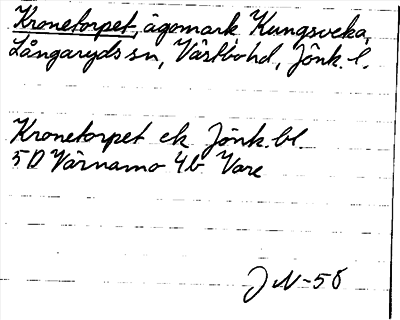 Kronetorpet, ägomark Kungsveka,
Långaryds sn, Västbo hd, Jönk. l.
Kronetorpet ek Jönk. bl.
5D Värnamo 4b Vare
JN-58